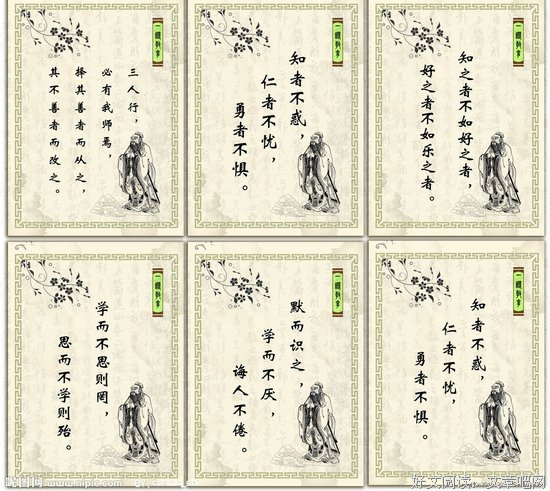 三人行，
必有我师焉，
择其善者而从之，
其不善者而改之。
知者不惑，
仁者不忧，
勇者不惧。
知之者不如好之者，
好之者不如乐之者。
学而不思则罔，
思而不学则殆。
默而识之，
学而不厌，
诲人不倦。
知者不惑，
仁者不忧，
勇者不惧。
昵图网 www.nipic.com
好文阅读 文章吧网